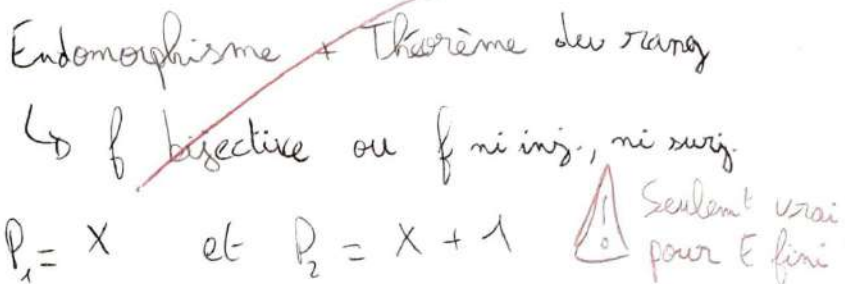 Endomorphisme + Théorème du rang
↳ f bijective ou f ni inj., ni surj.
P₁ = X et P₂ = X + 1
! Seulemt vrai
pour E fini